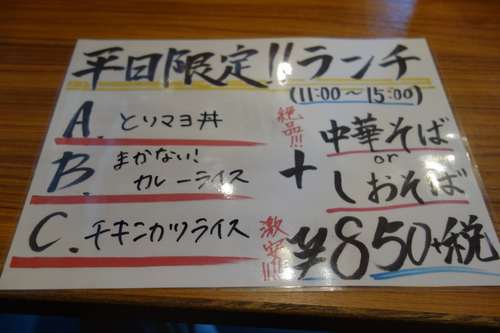 平日限定!!ランチ
(11:00～15:00)
A. とりマヨ丼
B. まかない!
カレーライス
C. チキンカツライス
絶品!!!
+
中華そば
or
しおそば
激安!!!
¥850+税